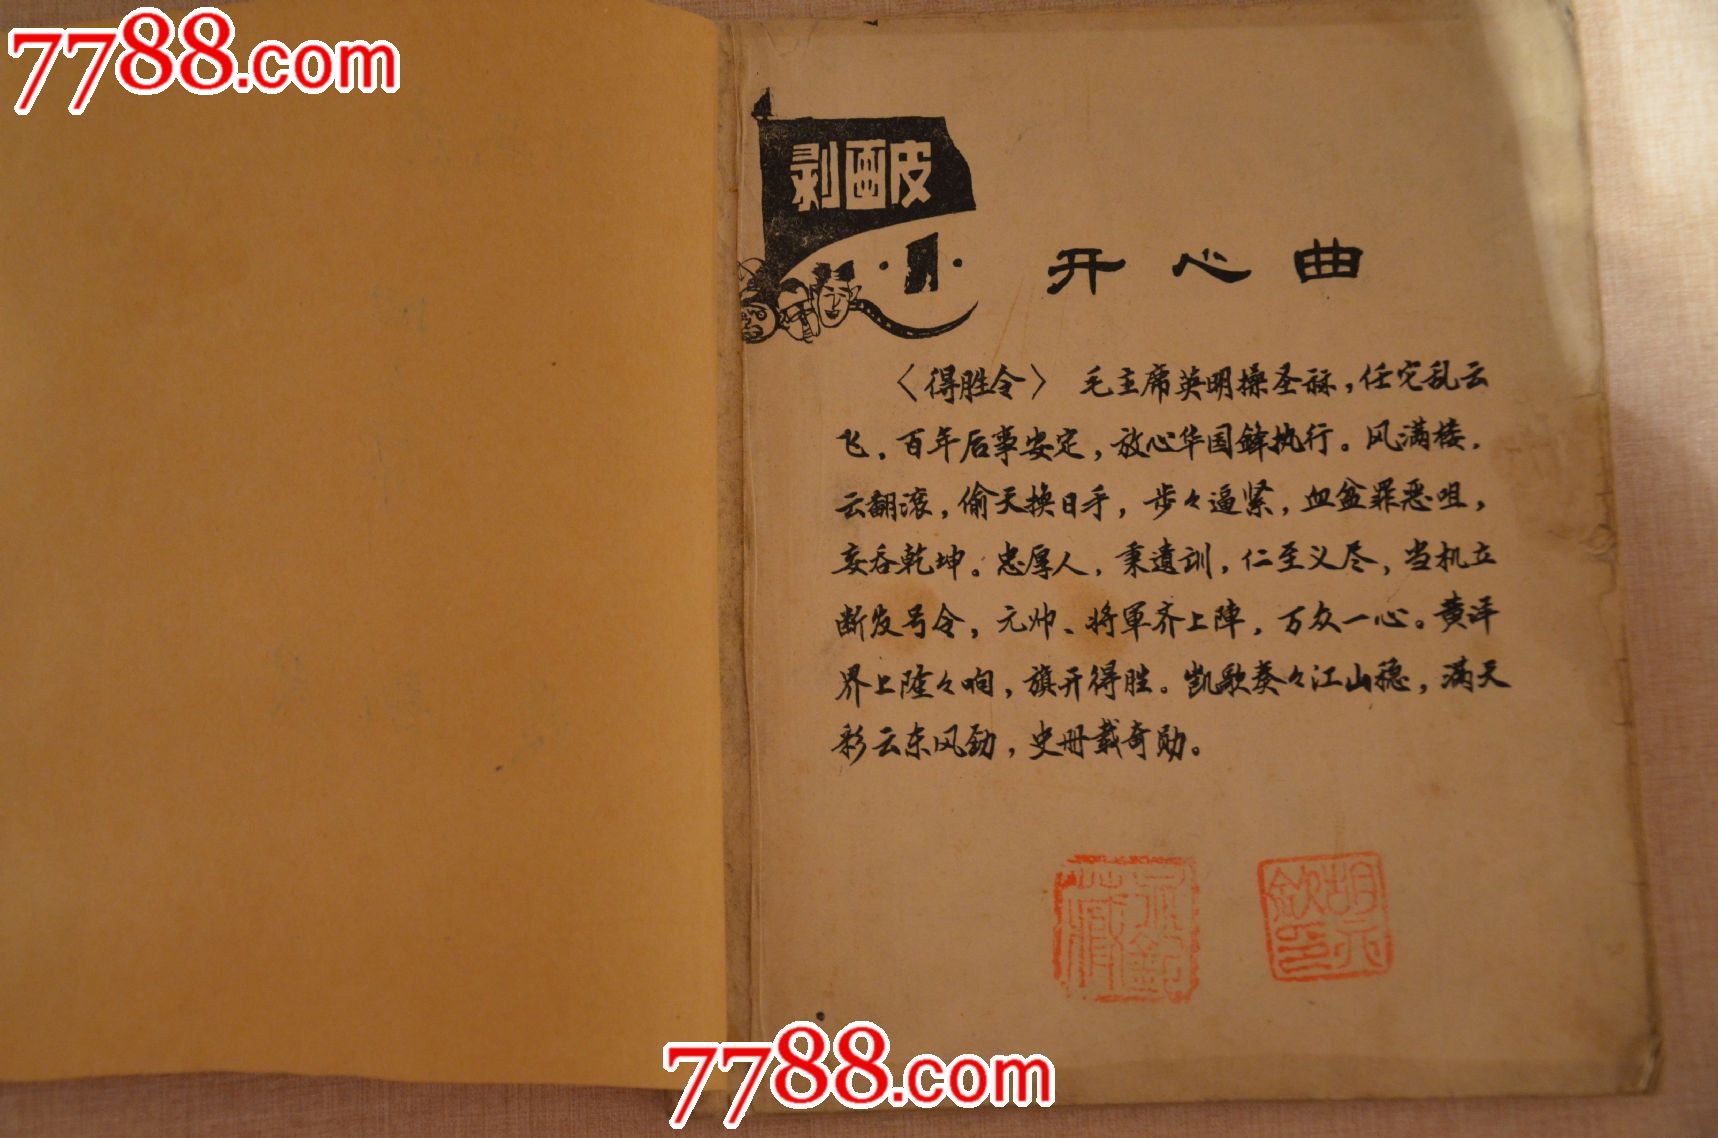 7788.com
剥画皮
开心曲
〈得胜令〉 毛主席英明操圣祘，任它乱云
飞，百年后事安定，放心华国鋒执行。风满楼，
云翻滚，偷天换日手，步々逼紧，血盆罪恶咀，
妄吞乾坤。忠厚人，秉遗训，仁至义尽，当机立
断发号令，元帅、将軍齐上陣，万众一心。黄洋
界上隆々响，旗开得胜。凯歌奏々江山稳，满天
彩云东风劲，史册载奇勋。
胡永欽印
7788.com